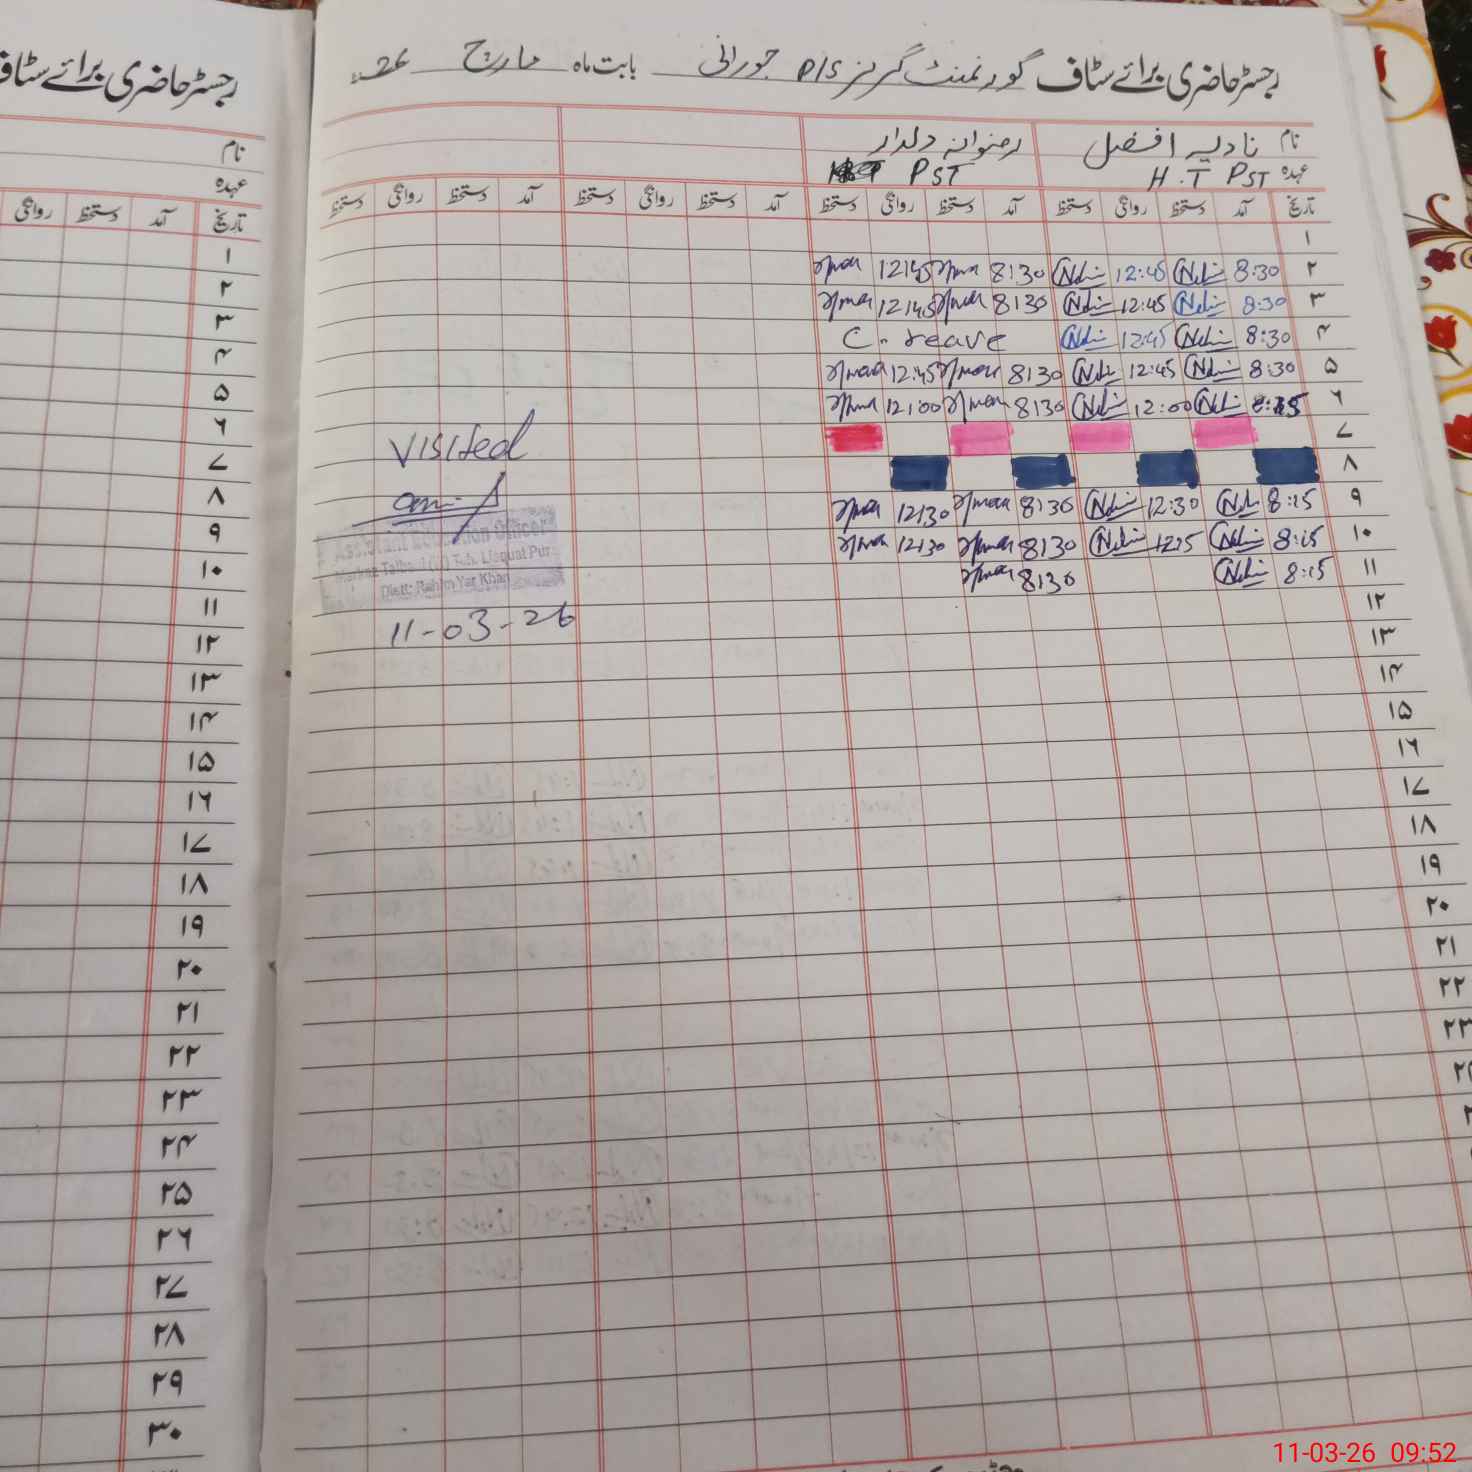 رجسٹر حاضری برائے سٹاف گورنمنٹ گرلز P/S جورانی بابت ماہ مارچ 26
نام نادیہ افضل رضوانہ دلدار
عہدہ H.T PST PST
تاریخ آمد دستخط روانگی دستخط آمد دستخط روانگی دستخط آمد دستخط روانگی دستخط آمد دستخط روانگی دستخط
۱
۲ 8:30 12:45 8:30 12:45
۳ 8:30 12:45 8:30 12:45
۴ 8:30 12:45 C. Leave
۵ 8:30 12:45 8:30 12:45
۶ 12:00 8:30 12:00
۷
۸
۹ 8:15 12:30 8:30 12:30
۱۰ 8:15 12:15 8:30 12:30
۱۱ 8:15 8:30
۱۲
۱۳
۱۴
۱۵
۱۶
۱۷
۱۸
۱۹
۲۰
۲۱
۲۲
۲۳
Visited
Assistant Education Officer
Liaquat Pur
Distt: Rahim Yar Khan
11-03-26
رجسٹر حاضری برائے سٹاف
نام
عہدہ
تاریخ آمد دستخط روانگی
۱
۲
۳
۴
۵
۶
۷
۸
۹
۱۰
۱۱
۱۲
۱۳
۱۴
۱۵
۱۶
۱۷
۱۸
۱۹
۲۰
۲۱
۲۲
۲۳
۲۴
۲۵
۲۶
۲۷
۲۸
۲۹
۳۰
11-03-26 09:52